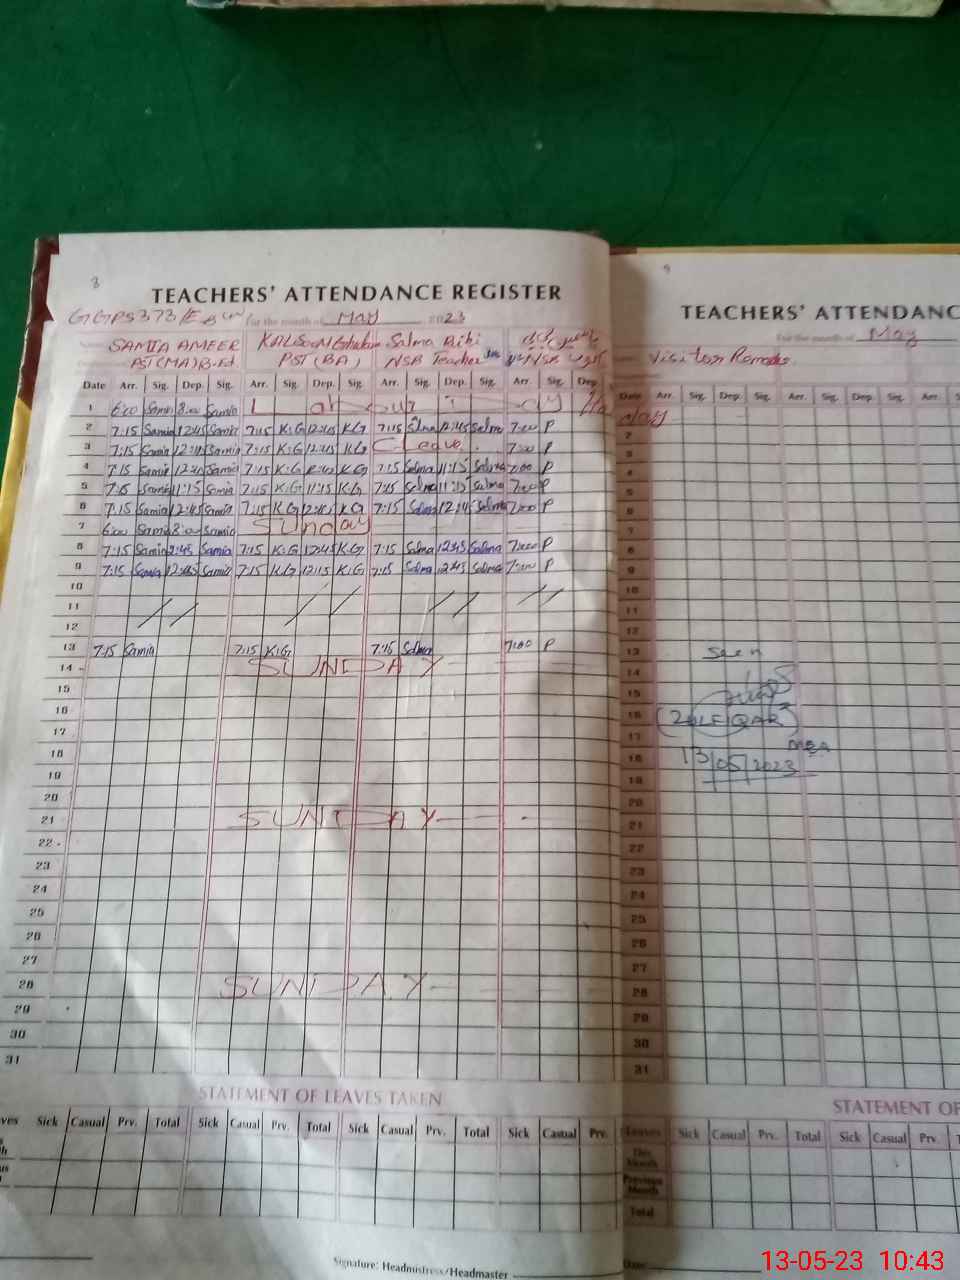 8
TEACHERS' ATTENDANCE REGISTER
GGPS 373/EB
For the month of May 2023
SAMIA AMEER KALSOOM Salma Bibi
PST (BA) NSB Teacher NSB
Date Arr. Sig. Dep. Sig. Arr. Sig. Dep. Sig. Arr. Sig. Dep. Sig. Arr. Sig. Dep.
1 6:00 Samia 8:00 Samia Labour Day
2 7:15 Samia 12:45 Samia 7:15 K.G 12:45 K.G 7:15 Salma 12:45 Salma 7:00 P
3 7:15 Samia 12:45 Samia 7:15 K.G 12:45 K.G C Leave 7:00 P
4 7:15 Samia 12:45 Samia 7:15 K.G 12:45 K.G 7:15 Salma 11:15 Salma 7:00 P
5 7:15 Samia 11:15 Samia 7:15 K.G 11:15 K.G 7:15 Salma 11:15 Salma 7:00 P
6 7:15 Samia 12:45 Samia 7:15 K.G 12:45 K.G 7:15 Salma 12:45 Salma 7:00 P
7 6:00 Samia 8:00 Samia Sunday
8 7:15 Samia 12:45 Samia 7:15 K.G 12:45 K.G 7:15 Salma 12:45 Salma 7:00 P
9 7:15 Samia 12:45 Samia 7:15 K.G 12:15 K.G 7:15 Salma 12:45 Salma 7:00 P
10
11
12
13 7:15 Samia 7:15 K.G 7:15 Salma 7:00 P
14 SUNDAY
15
16
17
18
19
20
21 SUNDAY
22
23
24
25
26
27
28 SUNDAY
29
30
31
STATEMENT OF LEAVES TAKEN
Sick Casual Prv. Total Sick Casual Prv. Total Sick Casual Prv. Total Sick Casual Prv.
Signature: Headmistress/Headmaster
9
TEACHERS' ATTENDANC
For the month of May
Visitor Remarks
Date Arr. Sig. Dep. Sig. Arr. Sig. Dep. Sig. Arr.
day
2
3
4
5
6
7
8
9
10
11
12
13 Seen
14
15
16 (ZULFIQAR)
17 MEA
18 13/05/2023
19
20
21
22
23
24
25
26
27
28
29
30
31
STATEMENT OF
Leaves Sick Casual Prv. Total Sick Casual Prv.
This Month
Previous Month
Total
Date
13-05-23 10:43